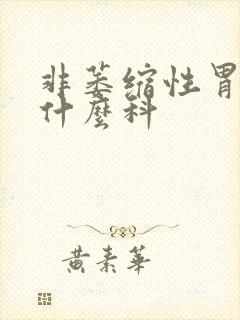 非萎缩性胃
什麼科
黄素華